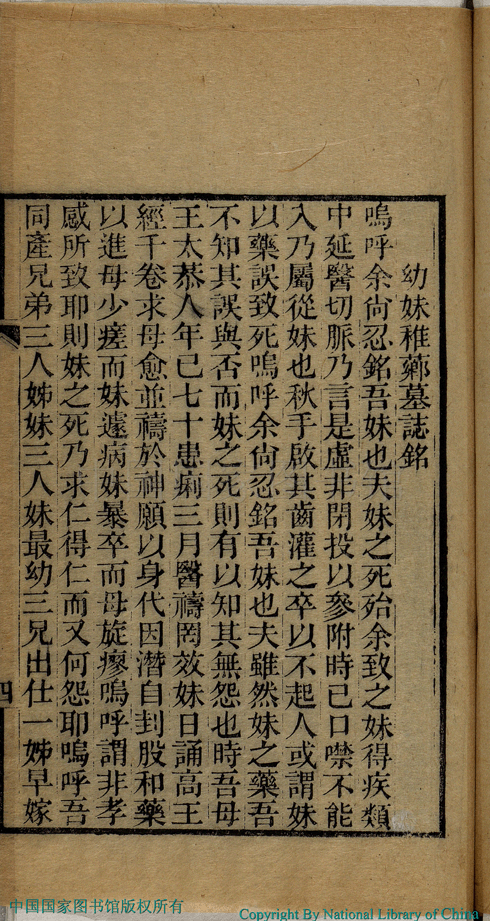 幼妹稚薌墓誌銘
嗚呼余尙忍銘吾妹也夫妹之死殆余致之妹得疾類
中延醫切脈乃言是虛非閉投以參附時已口噤不能
入乃屬從妹也秋手啟其齒灌之卒以不起人或謂妹
以藥誤致死嗚呼余尙忍銘吾妹也夫雖然妹之藥吾
不知其誤與否而妹之死則有以知其無怨也時吾母
王太恭人年已七十患痢三月醫禱罔效妹日誦高王
經千卷求母愈並禱於神願以身代因潛自刲股和藥
以進母少瘥而妹遽病妹暴卒而母旋瘳嗚呼謂非孝
感所致耶則妹之死乃求仁得仁而又何怨耶嗚呼吾
同產兄弟三人姊妹三人妹最幼三兄出仕一姊早嫁
四
中国国家图书馆版权所有
Copyright By National Library of China